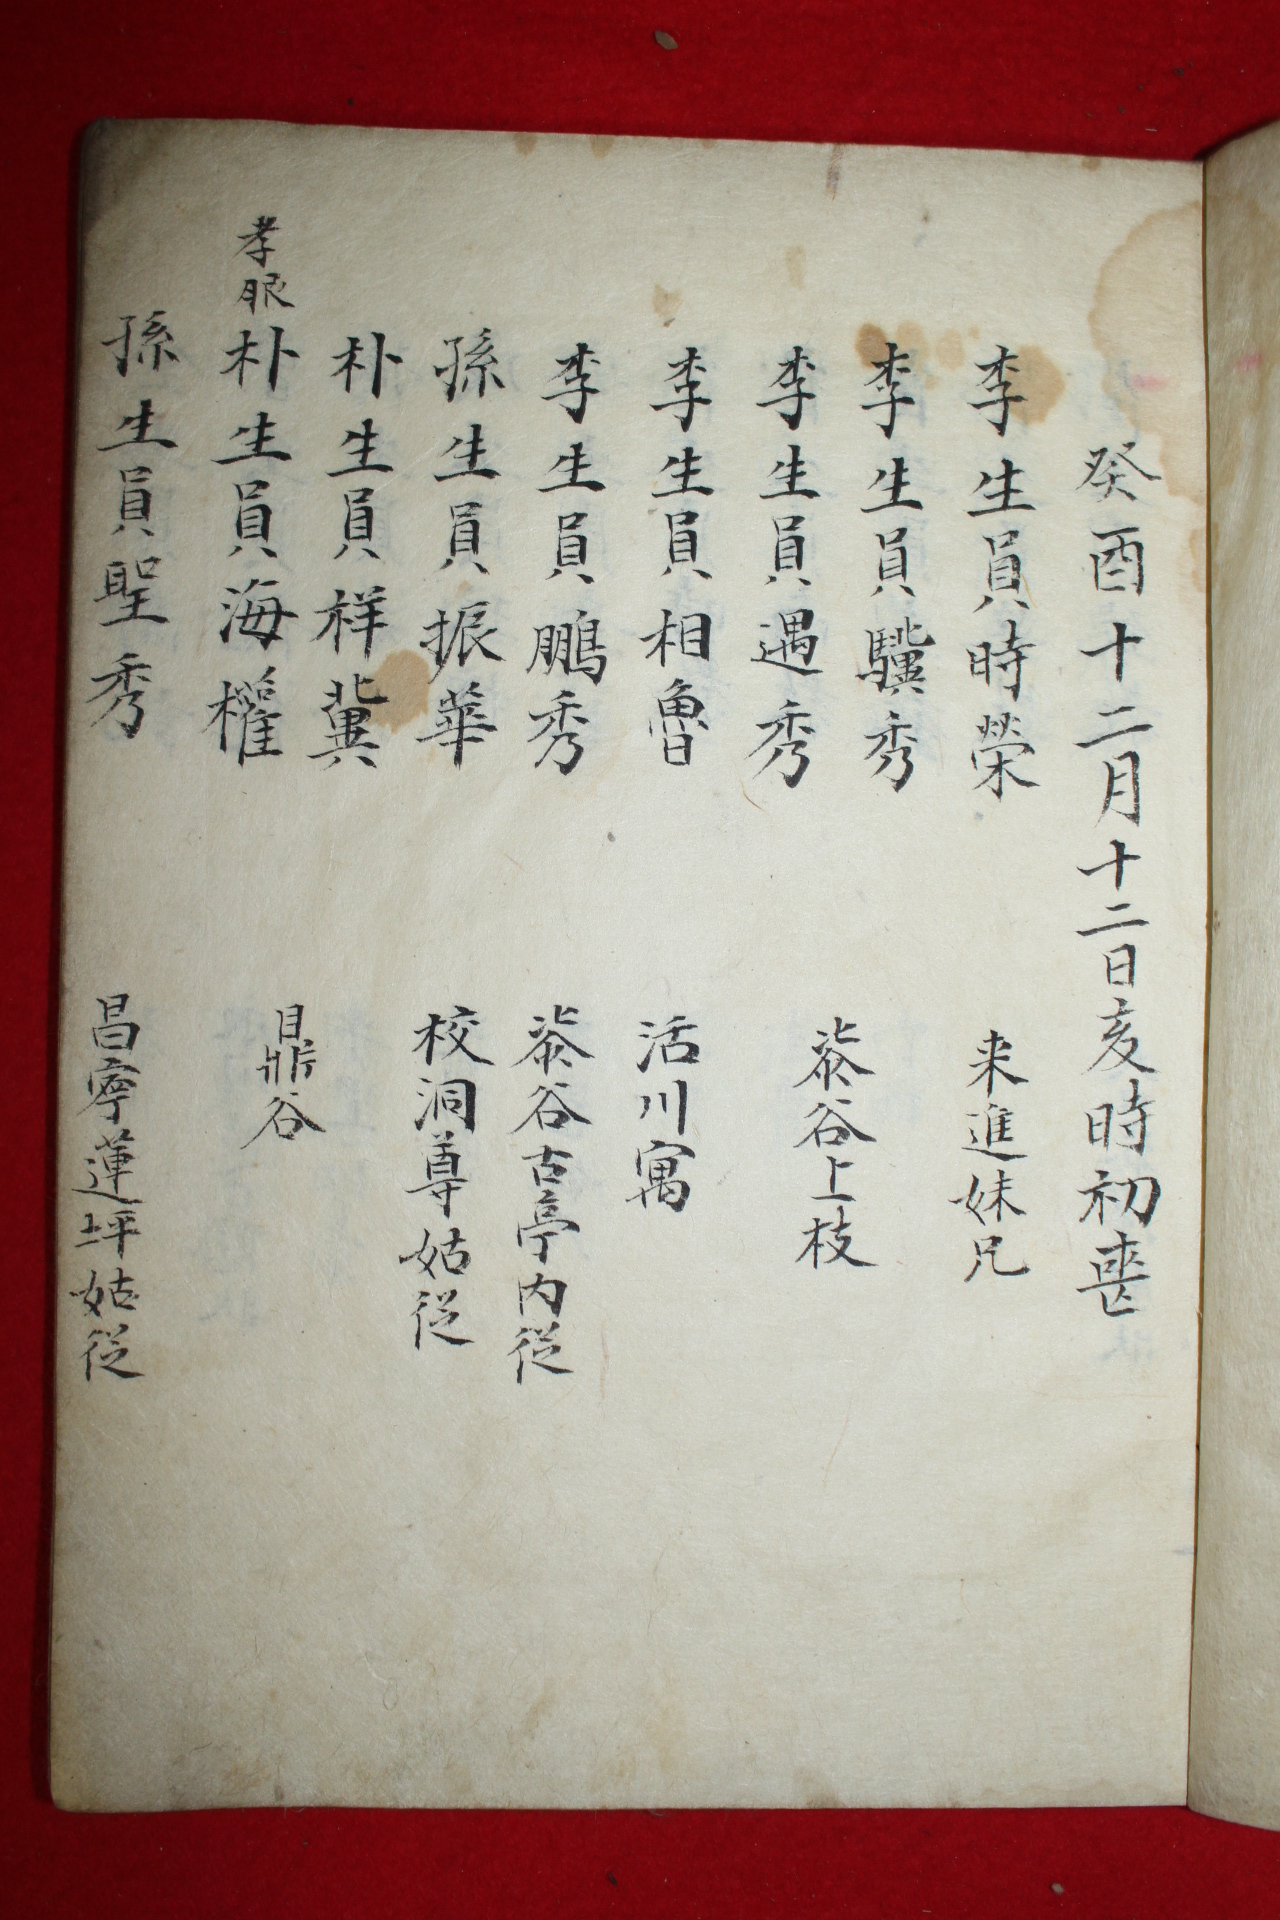 癸酉十二月十二日亥時初喪
李生員時榮 来進妹兄
李生員驥秀
李生員遇秀 柒谷上枝
李生員相魯 活川寓
李生員鵬秀 柒谷古亭内従
孫生員振華 校洞尊姑従
朴生員祥冀
孝服 朴生員海權 鼎谷
孫生員聖秀 昌寧蓮坪姑従